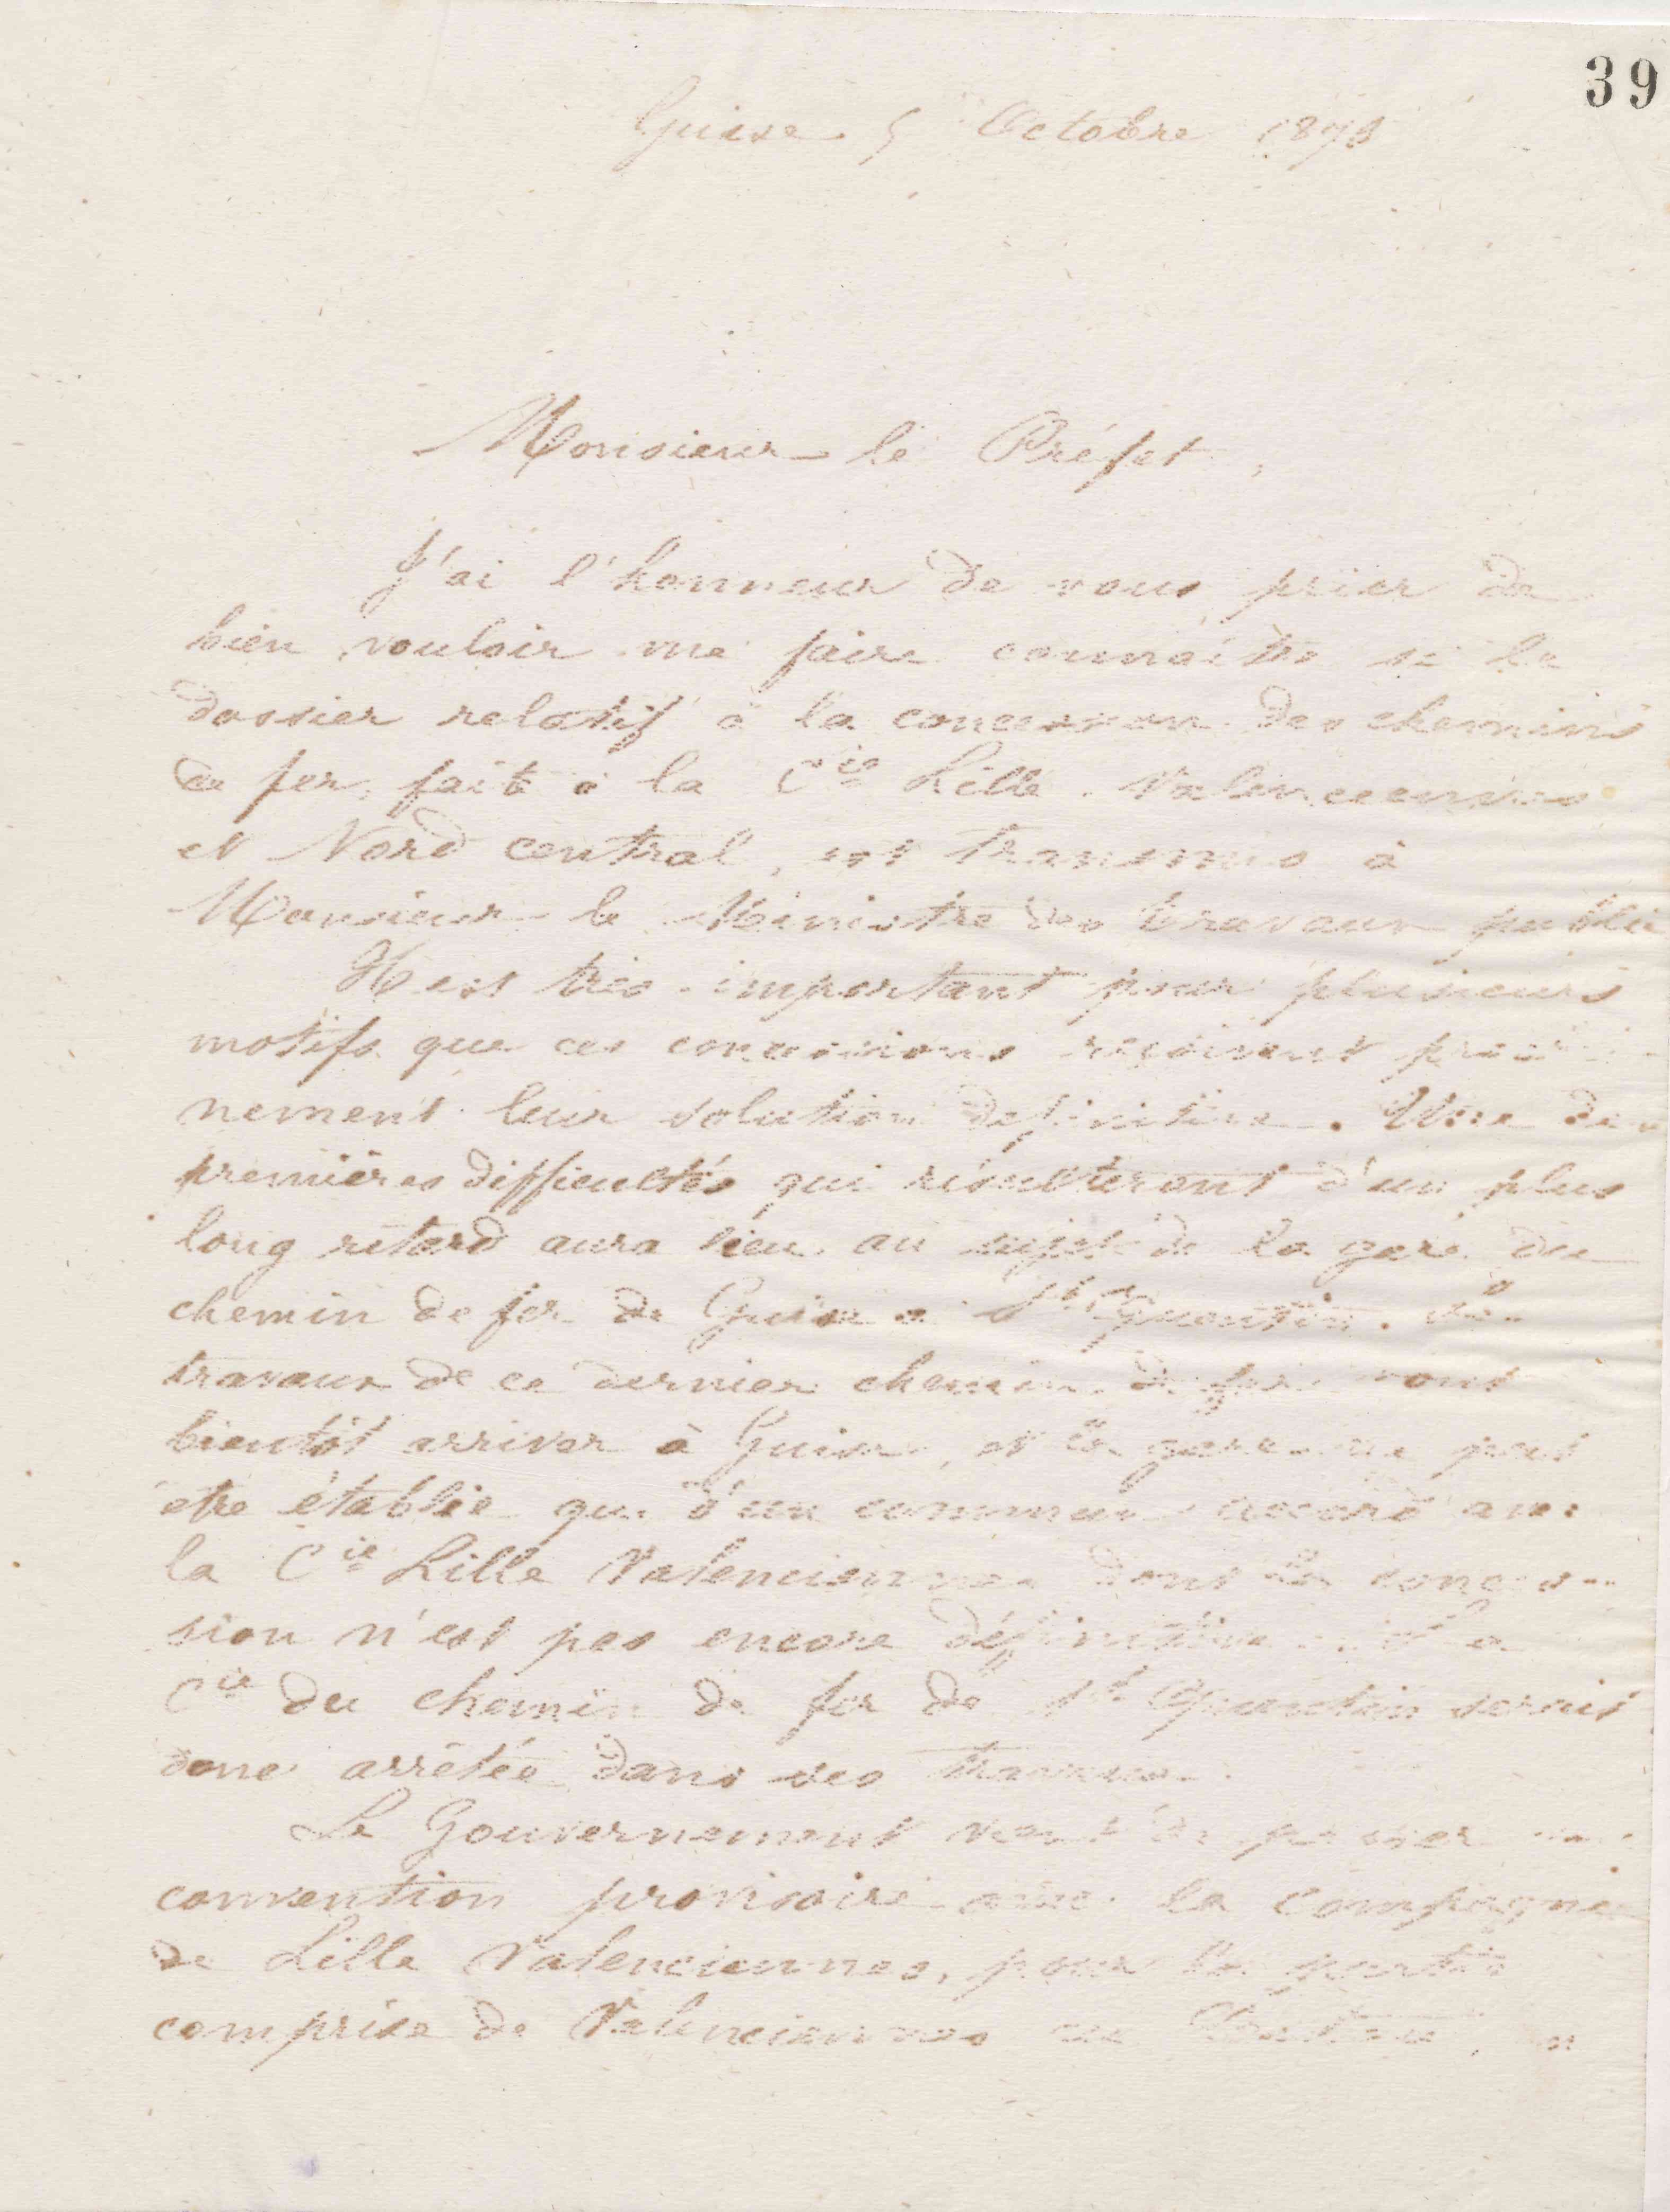 39
Guise 5 Octobre 1873
Monsieur le Préfet,
J'ai l'honneur de vous prier de
bien vouloir me faire connaître si le
dossier relatif à la concession des chemins
de fer, faite à la Cie Lille Valenciennes
et Nord central, est transmis à
Monsieur le Ministre des travaux public
Il est très important pour plusieurs
motifs que ces concessions reçoivent prochai-
nement leur solution définitive. Une des
premières difficultés qui résulteront d'un plus
long retard aura lieu au sujet de la gare du
chemin de fer de Guise à St Quentin. Les
travaux de ce dernier chemin de fer vont
bientôt arriver à Guise, et la gare ne peut
etre établie que d'un commun accord avec
la Cie Lille Valenciennes dont la conces-
sion n'est pas encore définitive. La
Cie du chemin de fer de St Quentin serait
donc arrêtée dans ses travaux.
Le Gouvernement vient de passer une
convention provisoire avec la compagnie
de Lille Valenciennes, pour la partie
comprise de Valenciennes au